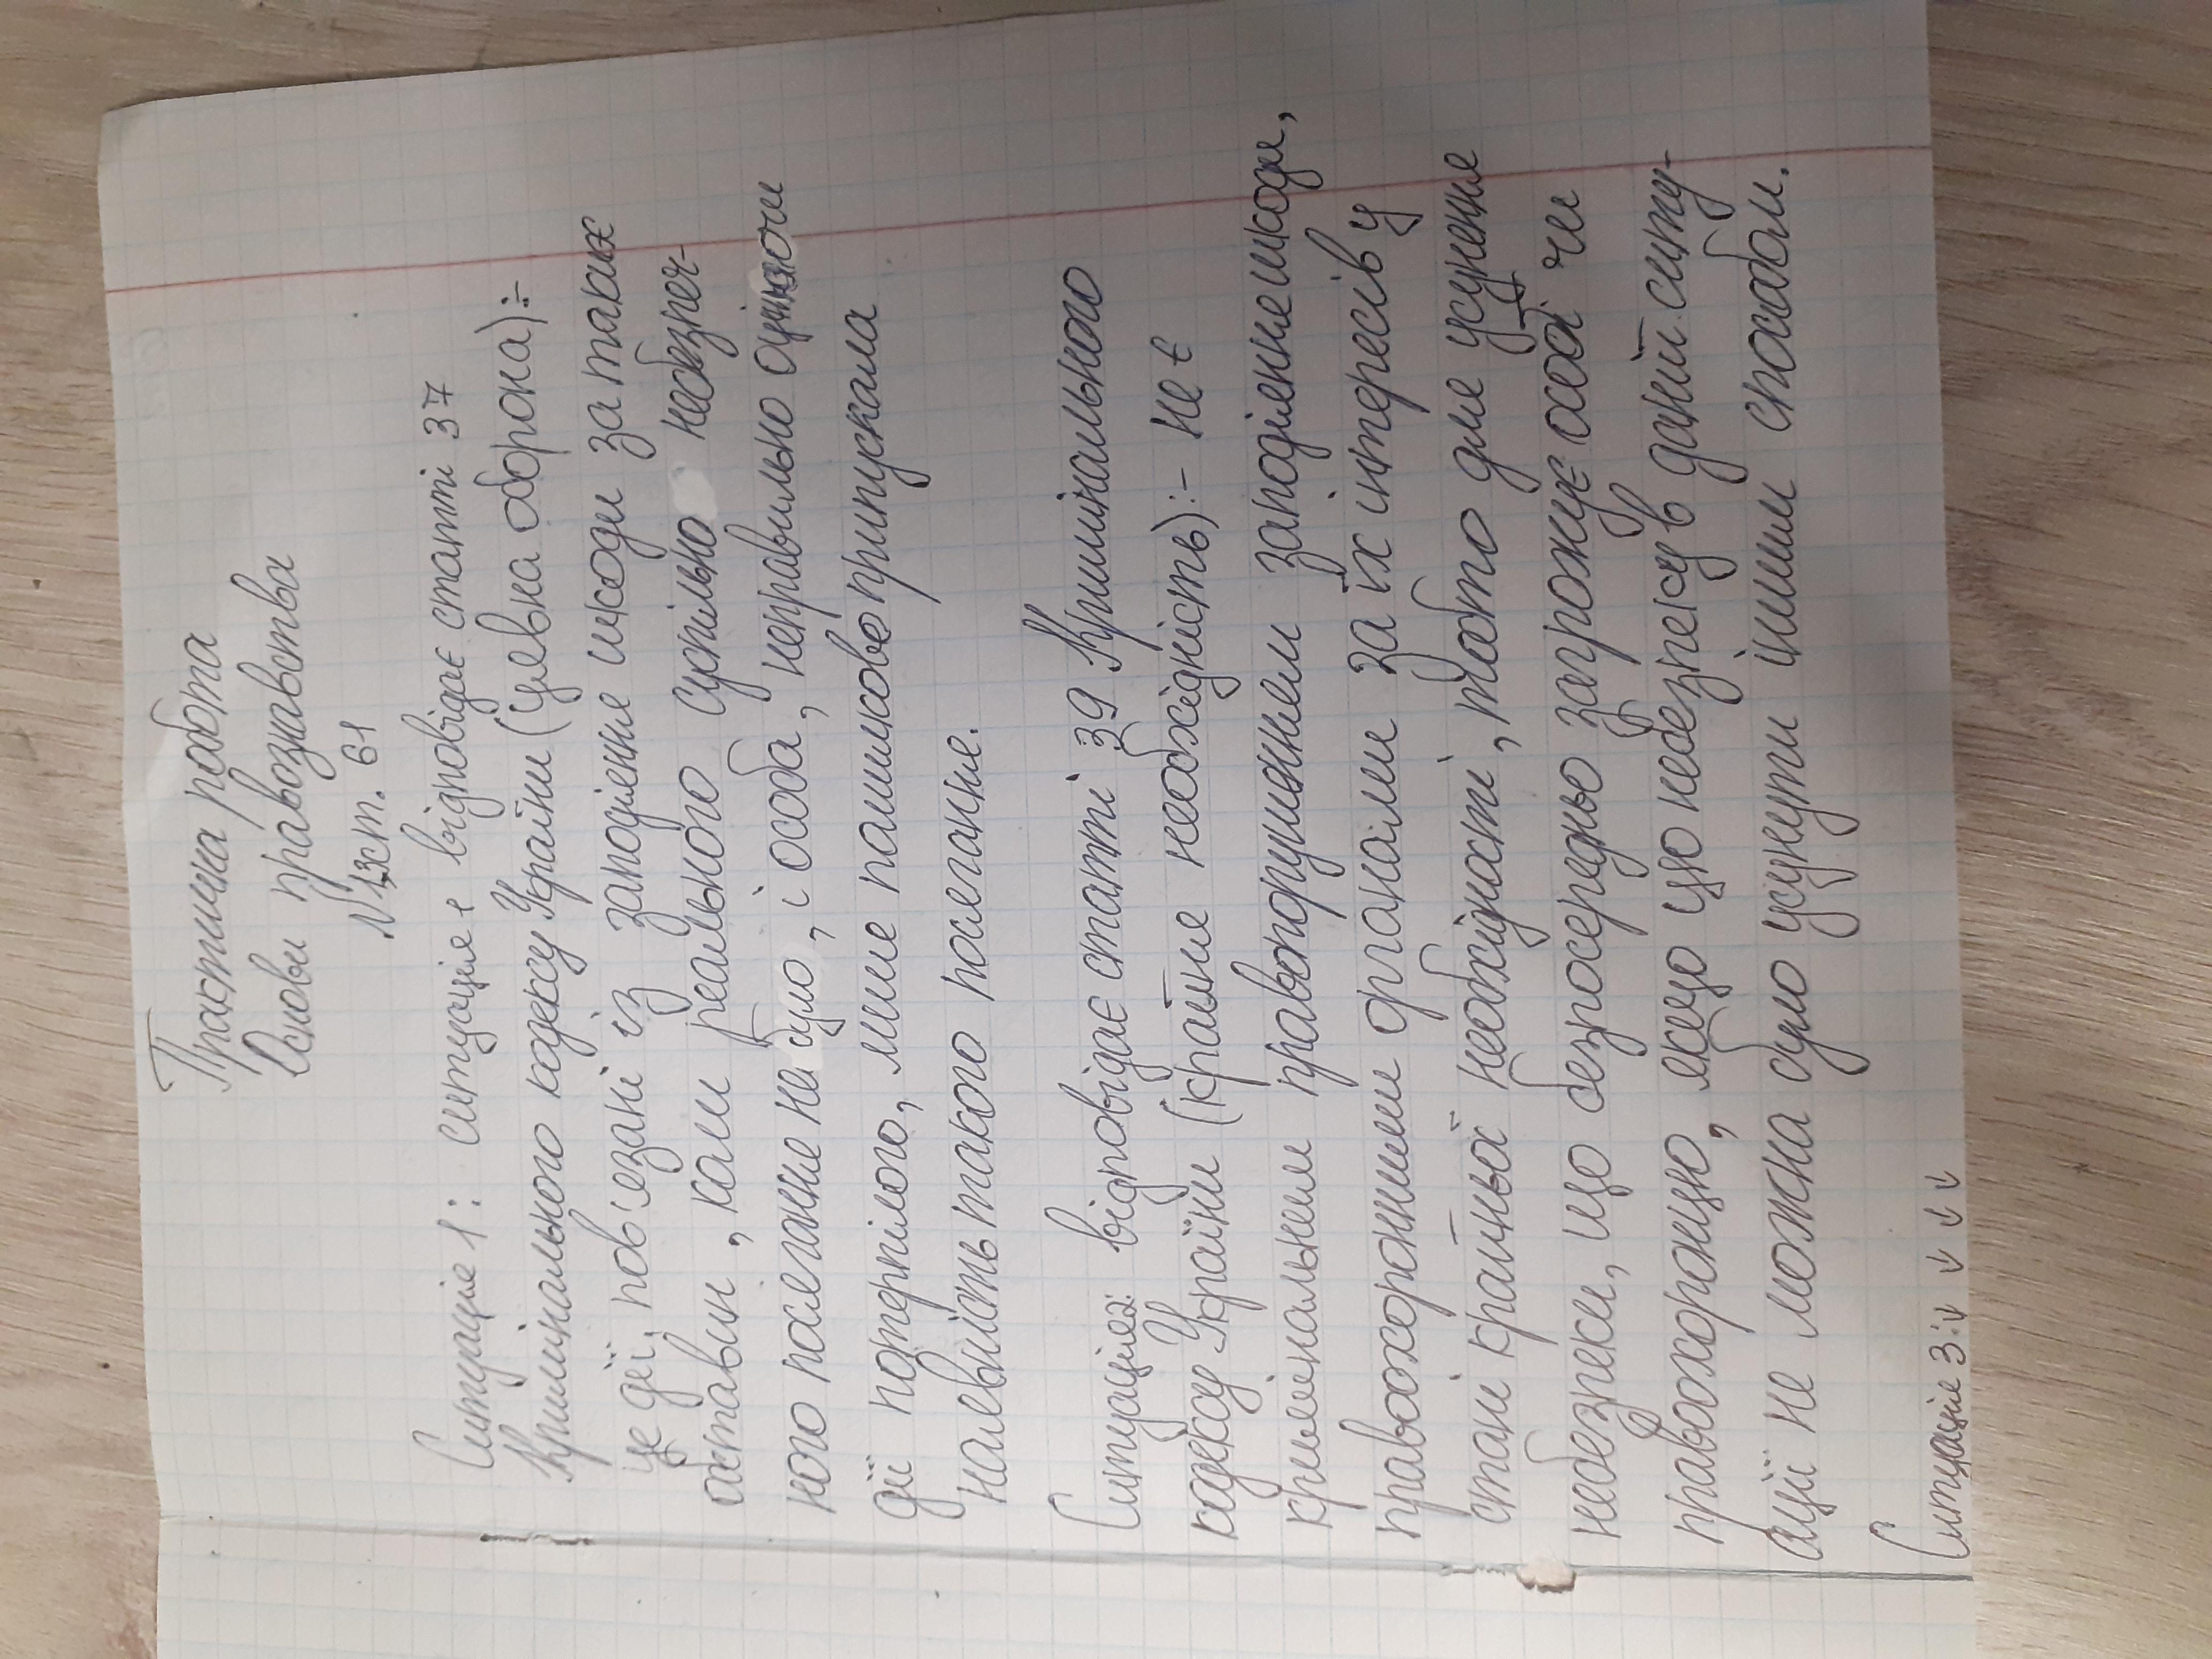 Практична робота
Основи правознавства
N13ст. 61
Ситуація 1: ситуація є відповідає статті 37
Кримінального кодексу України (уявна оборона):-
це дії, пов'язані із заподіяння шкоди за таких
обставин, коли реального суспільно небезпеч-
ного посягання не було, і особа, неправильно оцінюючи
дії потерпілого, лише помилкове припускала
наявність такого посягання.
Ситуація 2: відповідає статті 39 Кримінального
кодексу України (крайня необхідність):- не є
кримінальним правопорушенням заподіяння шкоди,
правоохоронними органами за їх інтересів у
стані крайньої необхідності, тобто для усунення
небезпеки, що безпосередньо загрожує особі чи
правоохоронцю, якщо цю небезпеку в даній ситу-
ації не можна було усунути іншим способом.
Ситуація 3: